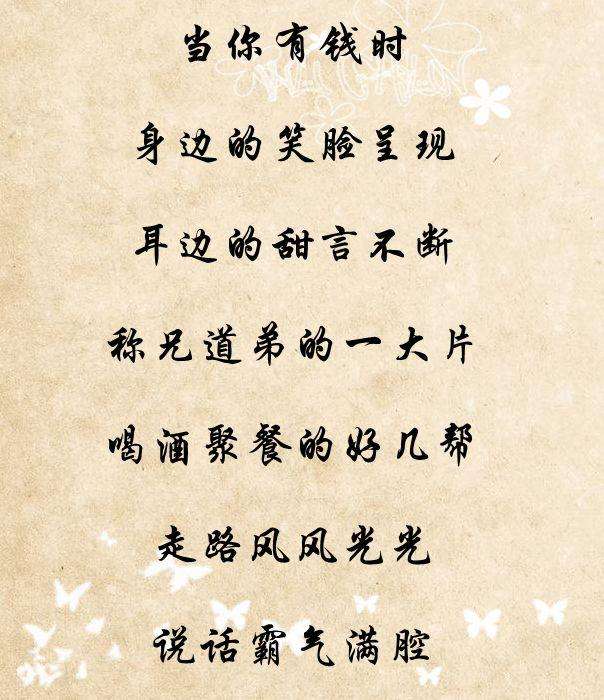 当你有钱时
身边的笑脸呈现
耳边的甜言不断
称兄道弟的一大片
喝酒聚餐的好几帮
走路风风光光
说话霸气满腔